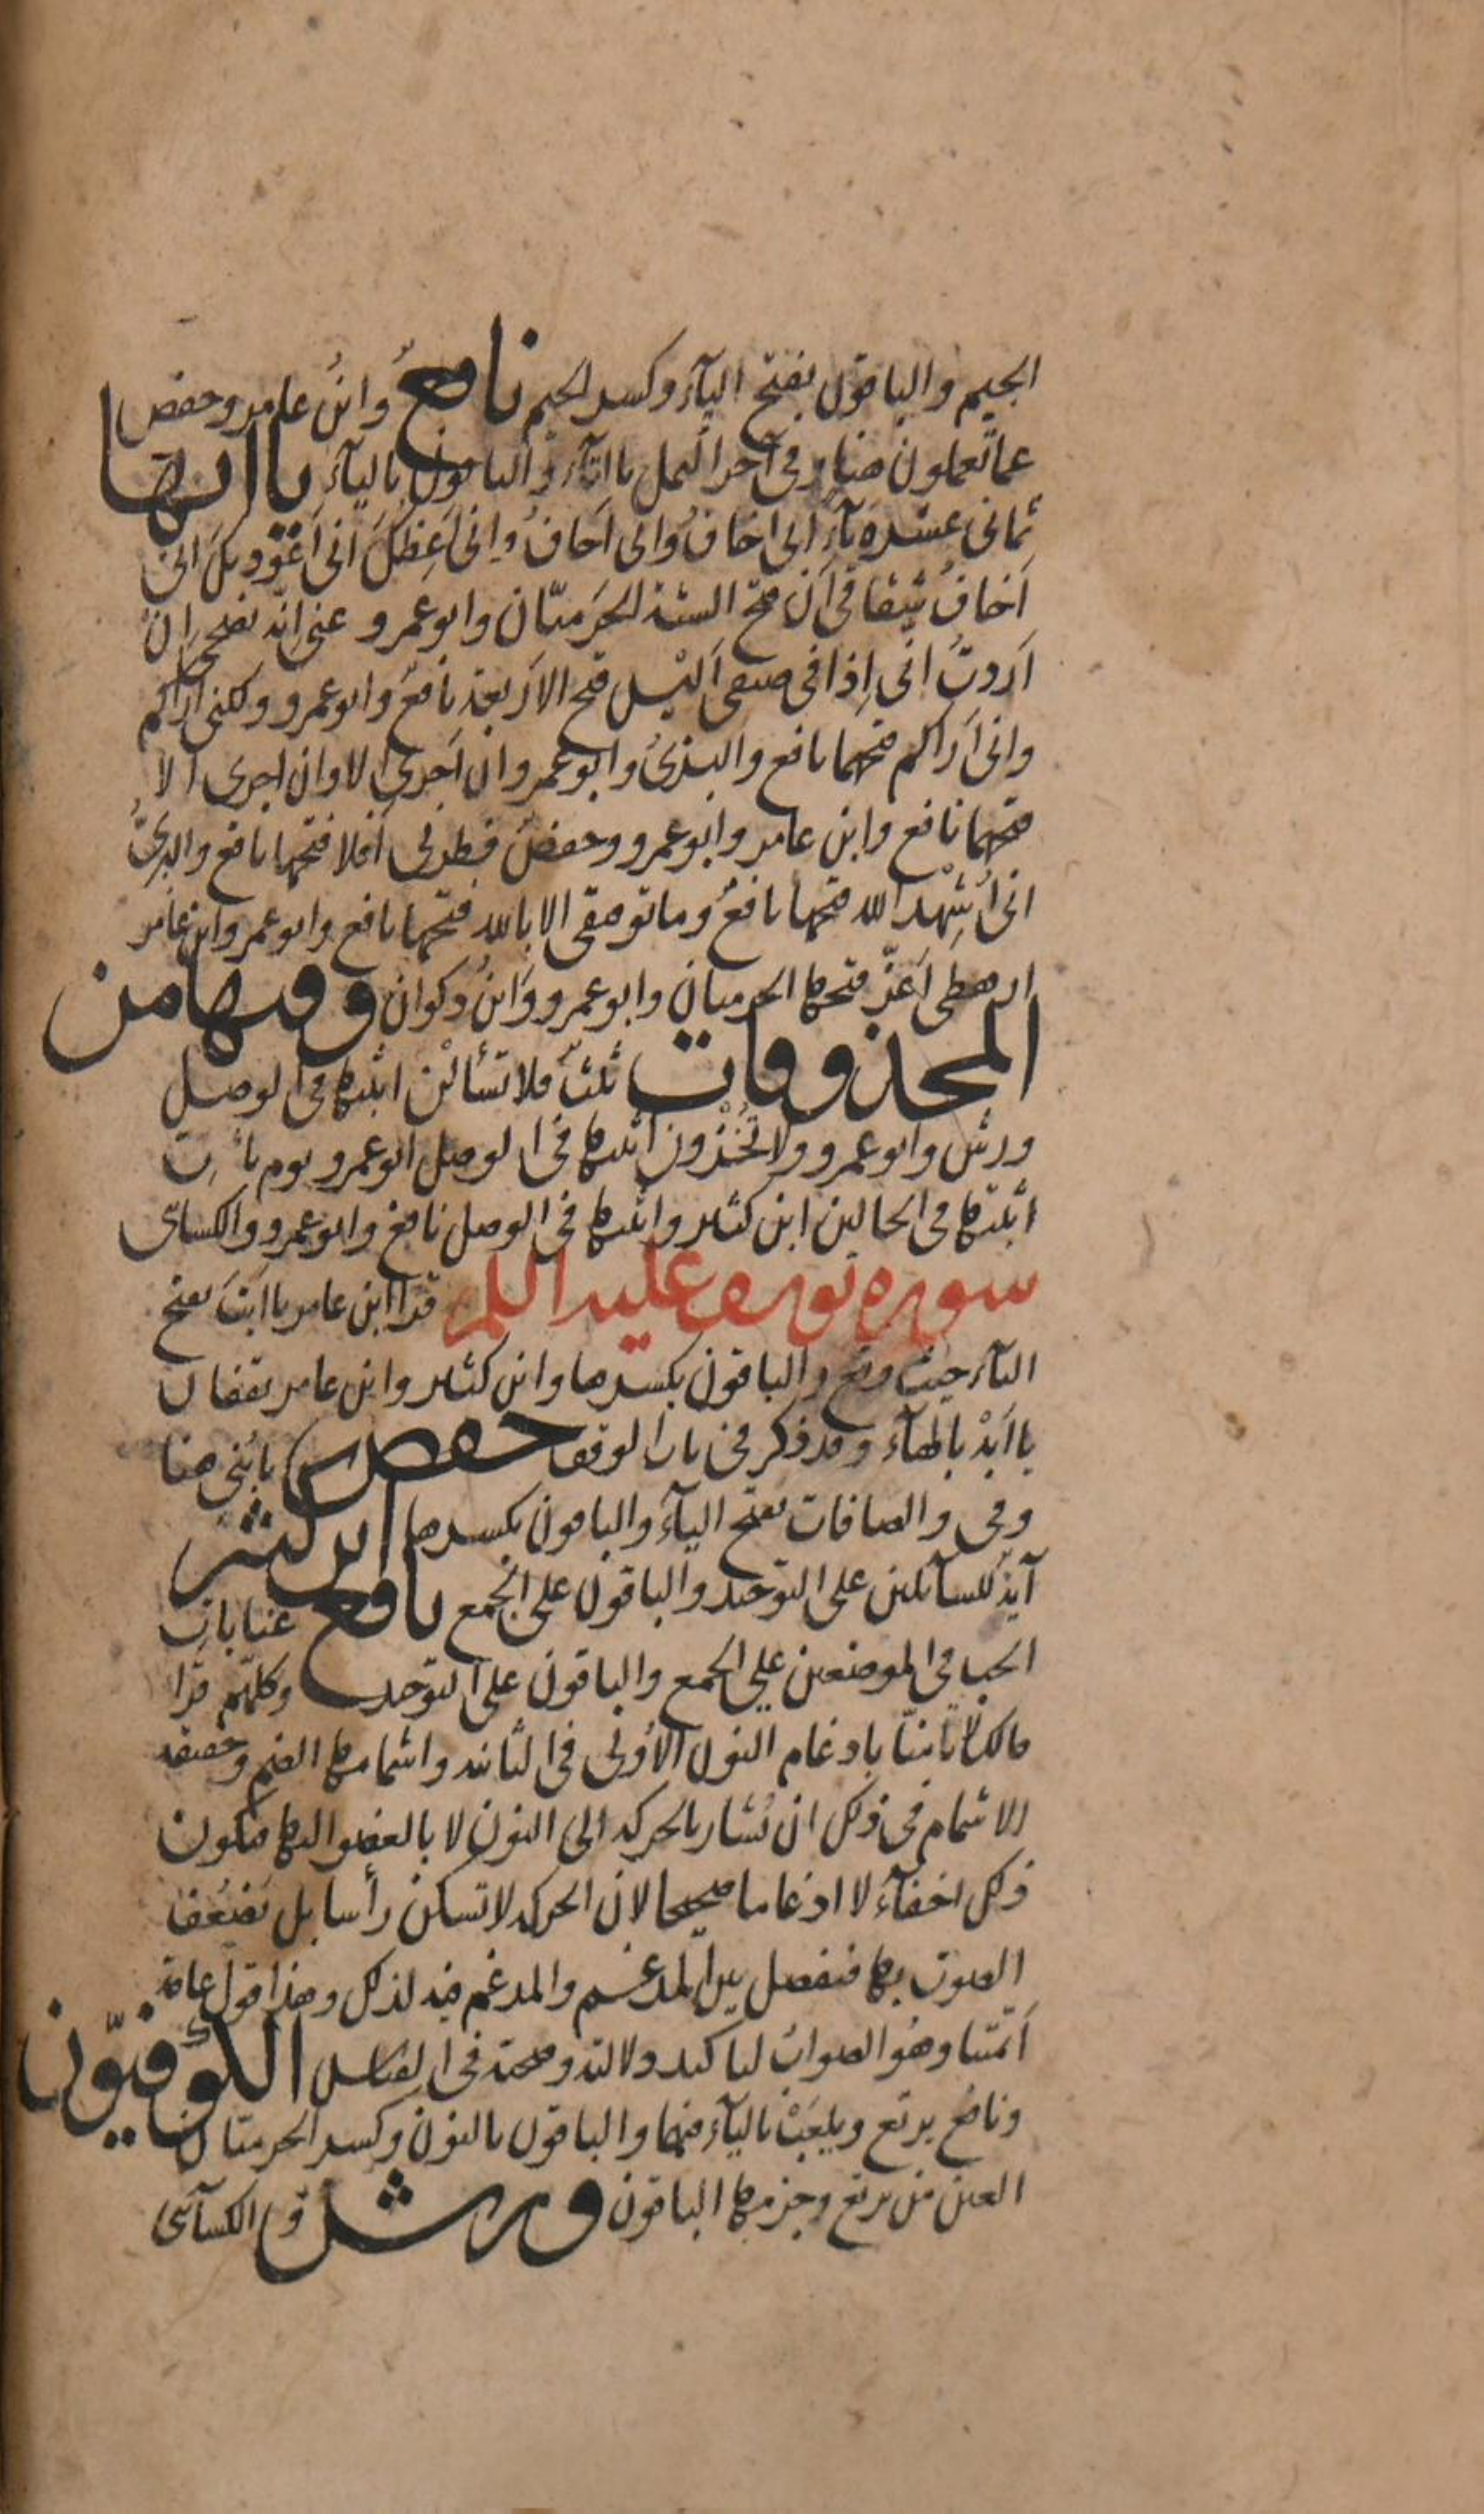 الجيم والباقون بفتح اليآء وكسر الجيم نافعٌ وابنُ عامر وحفص
عما تعملون هنا وفى آخر النمل بالتآء والباقون باليآء يااتها
ثمانى عشره ياءً انى اخافُ وانى اَخافُ وانى اَعِظُكَ انى اَعُوذ بك انى
اَخافُ شِقاقى اَن فتح الستة الحَرَميّان وابو عَمرو عنى انّه نصحى ان
اَردتُ انى اِذا فى ضيفى اَلَيْس فتح الاَربعة نافعٌ وابو عمرو ولكنى اَراكم
وانى اَراكم فتحهما نافع والبزىُّ وابو عمرو ان اَجرى الا وان اجرى الا
فتحهما نافع وابن عامر وابو عمرو وحفصٌ فطرنى اَفلا فتحها نافع والبزىُّ
انى اُشْهِد الله فتحها نافعٌ وما توفيقى الا بالله فتحها نافع وابو عمرو وابن عامر
ارهطى اَعَزُّ فتحها الحرميان وابو عمرو وابنُ ذكوان وفيها من
المحذوفات ثلثٌ فلا تَسْأَلْن اثبتها فى الوصل
ورش وابو عمرو ولا تُخْزون اثبتها فى الوصل ابو عمرو يوم يأتِ
اثبتها فى الحالين ابن كثير واثبتها فى الوصل نافع وابو عمرو والكسائى
سوره يوسف عليه السلم قرا ابن عامر يا ابتَ بفتح
التآء حيث وقع والباقون بكسرها وابن كثير وابن عامر يقفان
يا اَبَهْ بالهآء وقد ذكر فى باب الوقف حفص يا بُنى هنا
وفى والصافات بفتح اليآء والباقون بكسرها ابن كثير
آية للسآئلين على التوحيد والباقون على الجمع نافع غيابات
الجب فى الموضعين على الجمع والباقون على التوحيد وكلهم قرا
مالك لا تامنّا بادغام النون الاُولى فى الثانية واشمامها الضم وحقيقة
الاشمام فى ذلك ان يُشار بالحركة الى النون لا بالعضو اليها فيكون
ذلك اخفآءً لا ادغاما صحيحا لان الحركة لا تسكن رأسا بل يُضَعَّف
الصوت بها فيفصل بين المدغم والمدغم فيه لذلك وهذا قول عامة
اَئمّتنا وهُو الصواب لتاكيد دلالته وصحته فى القياس الكُوفيّون
ونافع يرتع ويلعَبْ باليآء فيهما والباقون بالنون وكسر الحرميّان
العين من يرتع وجزمها الباقون ورش والكسآئى